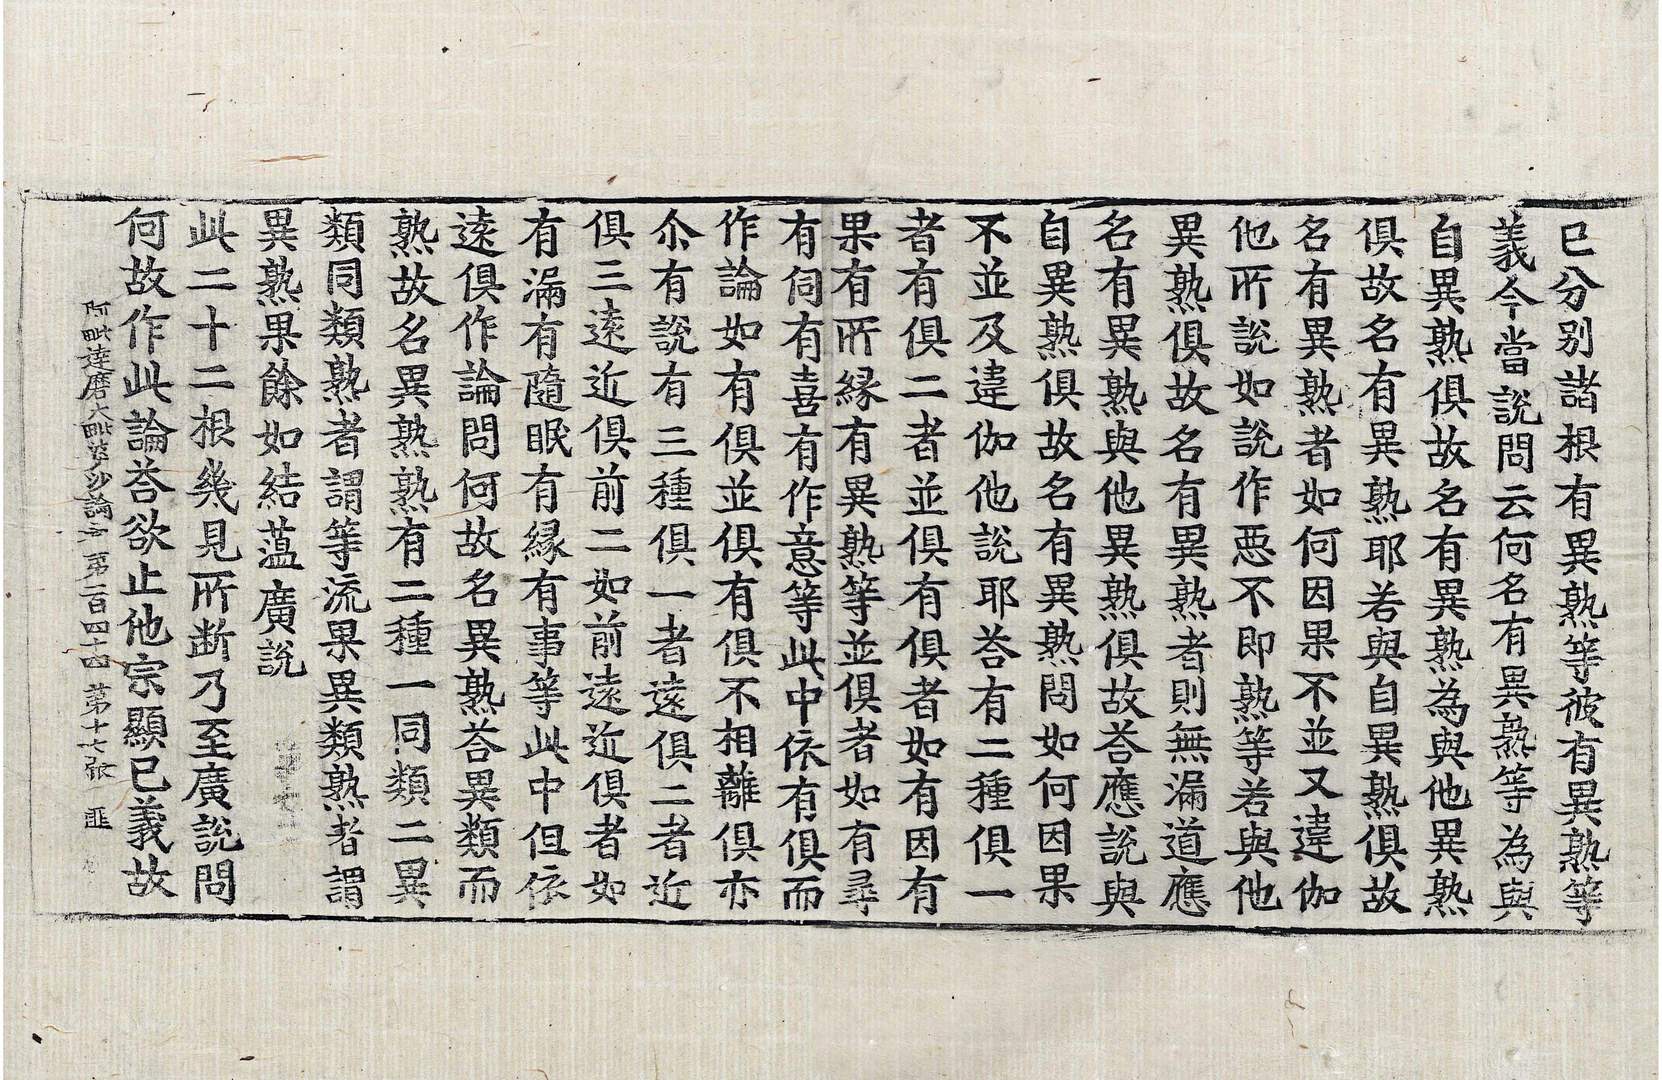 已分別諸根有異熟等彼有異熟等
義今當說問云何名有異熟等為與
自異熟俱故名有異熟為與他異熟
俱故名有異熟耶若與自異熟俱故
名有異熟者如何因果不並又違伽
他所說如說作惡不即熟等若與他
異熟俱故名有異熟者則無漏道應
名有異熟與他異熟俱故荅應說與
自異熟俱故名有異熟問如何因果
不並及違伽他說耶荅有二種俱一
者有俱二者並俱有俱者如有因有
果有所緣有異熟等並俱者如有尋
有伺有喜有作意等此中依有俱而
作論如有俱並俱有俱不相離俱亦
尒有說有三種俱一者遠俱二者近
俱三遠近俱前二如前遠近俱者如
有漏有隨眠有緣有事等此中但依
遠俱作論問何故名異熟荅異類而
熟故名異熟熟有二種一同類二異
類同類熟者謂等流果異類熟者謂
異熟果餘如結蘊廣說
此二十二根幾見所斷乃至廣說問
何故作此論荅欲止他宗顯已義故
阿毗達磨大毗婆沙論 第一百四十四 第十七張 匪